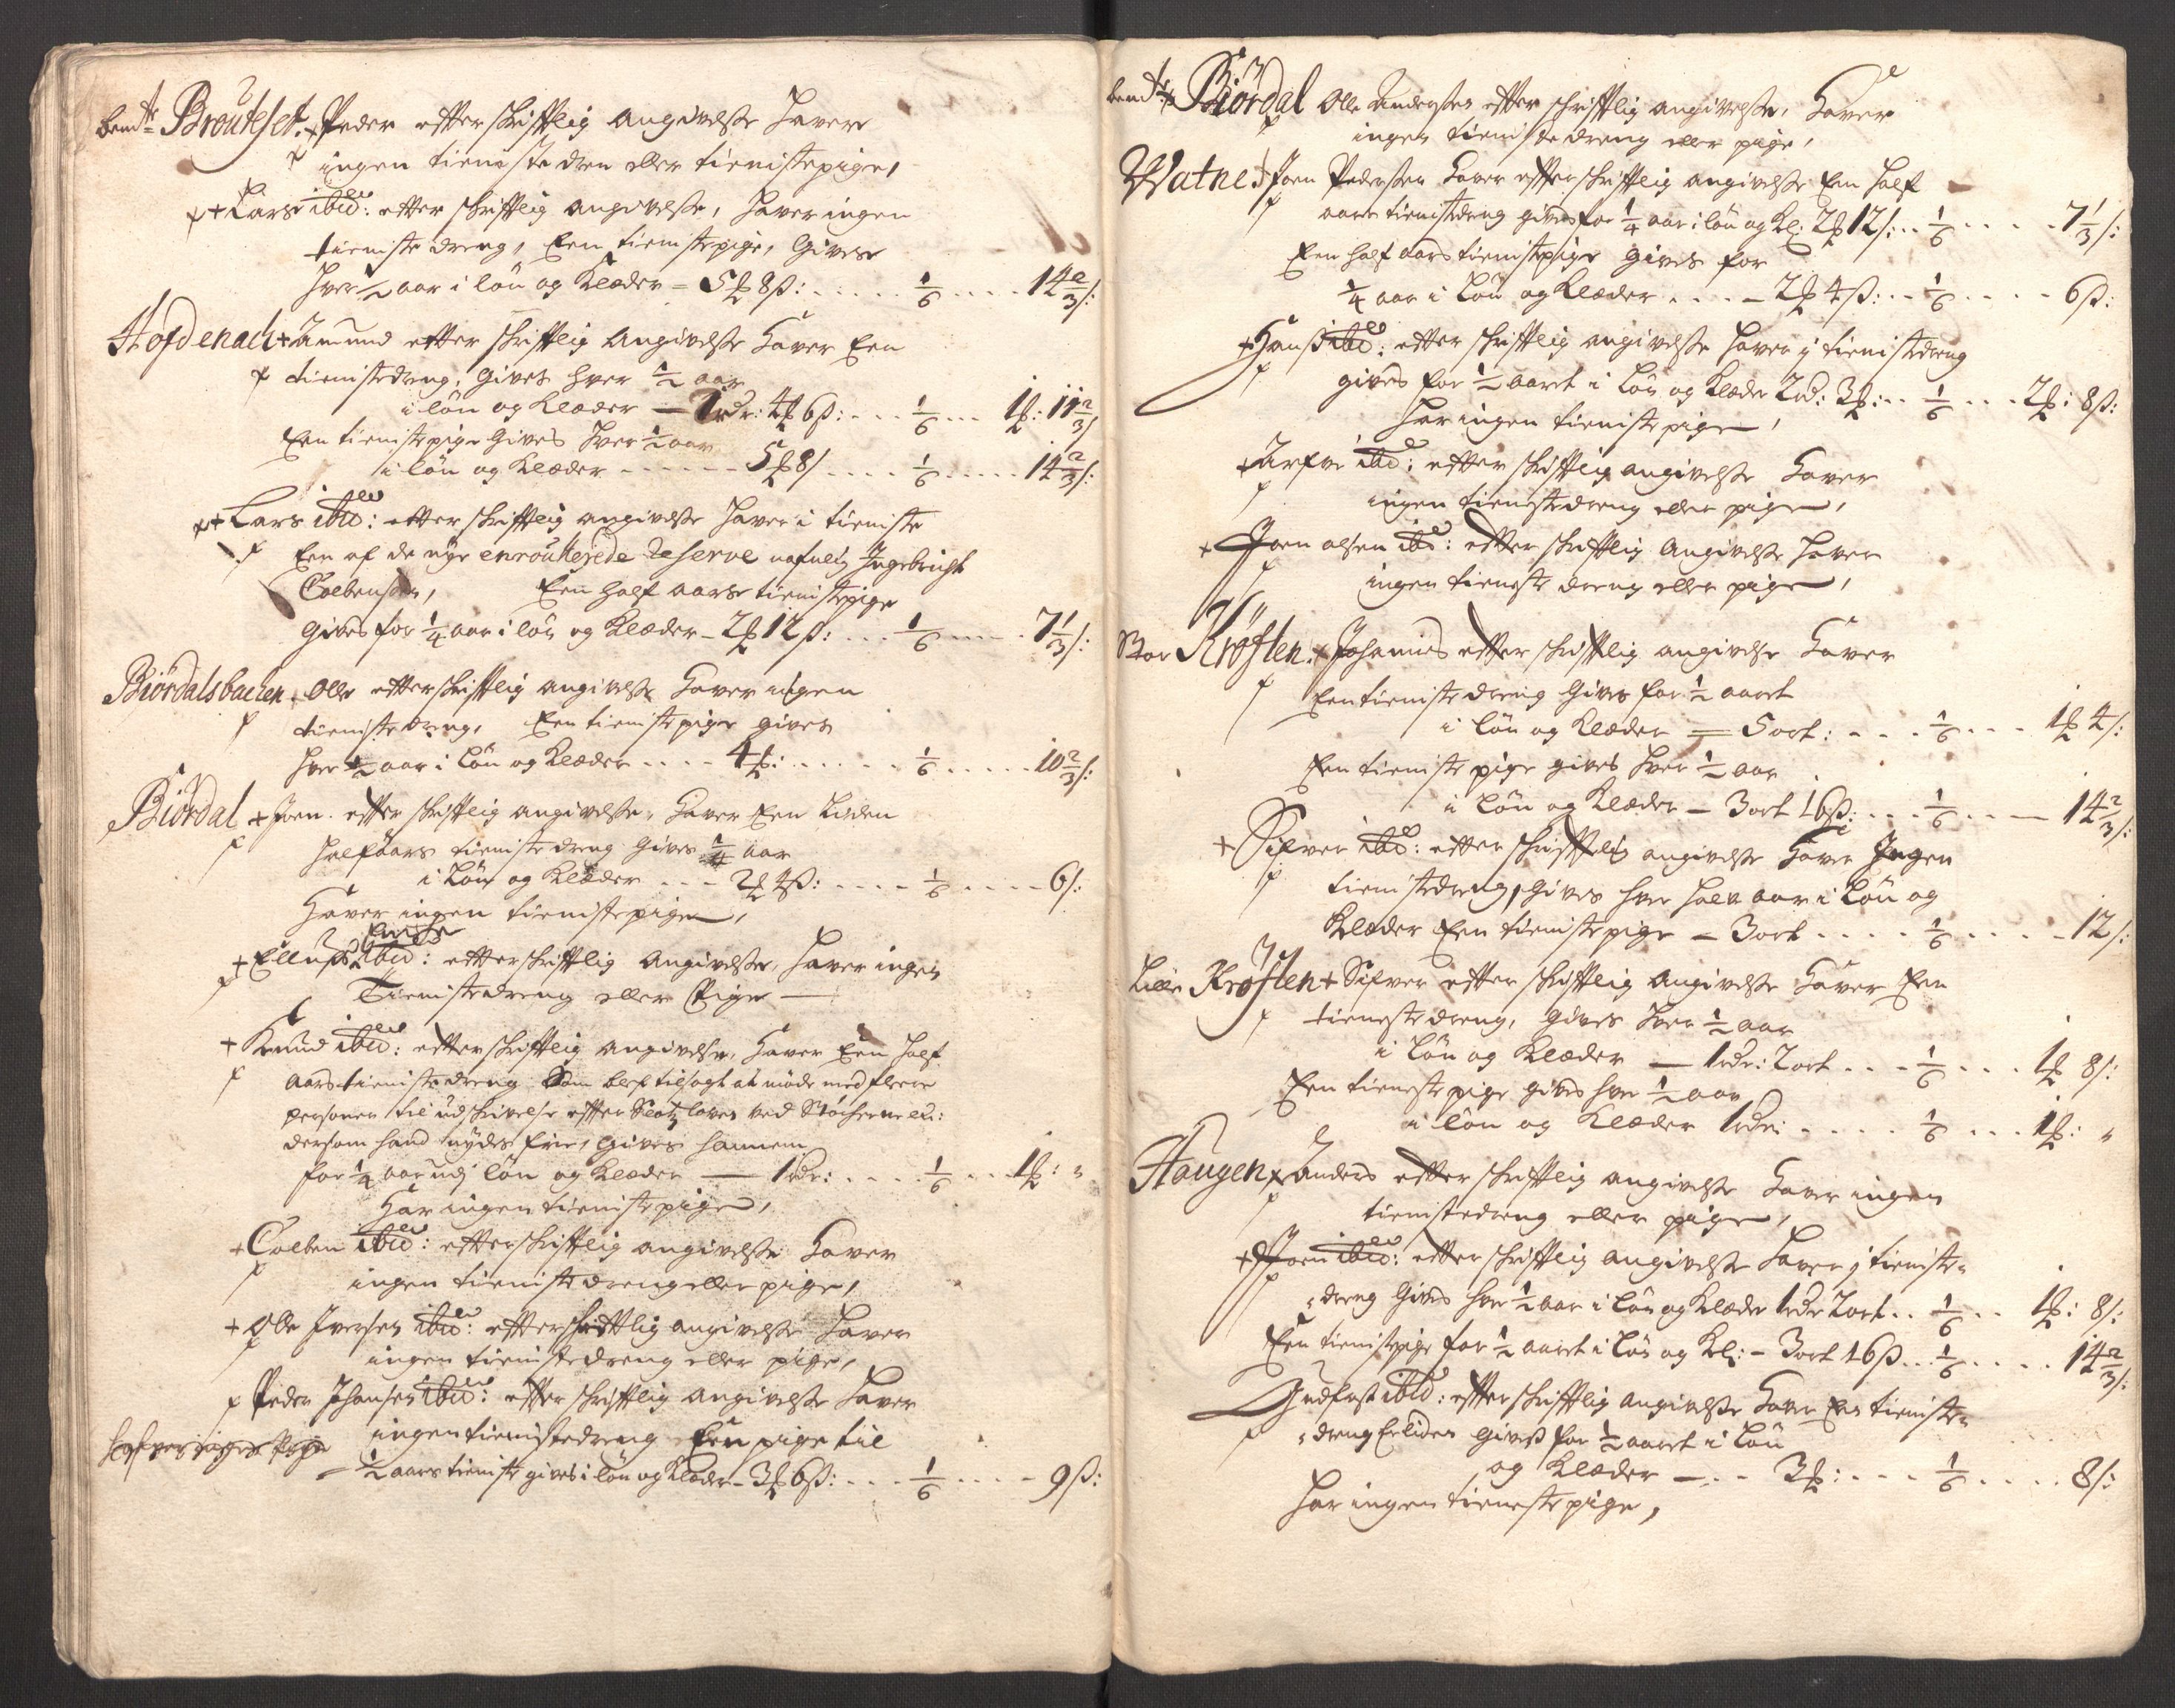 bemte Brouteset. + Peder efter skriftlig angivelse haver
ingen tieniste dren eller tienistepige,
+ Lars ibid: efter skriftlig angivelse, haver ingen
tieniste dreng, Een tienistepige, Gives
hver ½ aar i løn og Klæder = 5 ℔ 8ß: . . . . ⅙ . . . . 14⅔ ß:
Hofdenack + Amund efter skriftlig Angivelse haver Een
tienistedreng, gives hver ½ aar
i løn og Klæder — 1 rdr: 4 ℔ 6ß: . . . ⅙ . . . 1 ℔: 11⅔ ß
Een tienistepige gives hver ½ aar
i løn og Klæder - - - - - 5 ℔ 8ß . . . . ⅙ . . . . 14⅔ ß:
+ Lars ibid: efter skriftlig angivelse haver i tieniste
Een af de nye enroullejede Reserve nafnlig Ingebricht
Colbensen, Een half aars tienistepige
Gives for ¼ aar i løn og Klæder - 2 ℔ 12 ß: . . . ⅙ . . . . 7⅓ ß:
Biørdalsbacken. Olle efter skriftlig angivelse haver ingen
tieniste dreng, Een tienistepige gives
hver ½ aar i løn og Klæder . . . . 4 ℔: . . . . . ⅙ . . . . . 10⅔ ß:
Biørdal + Joen. efter skriftlig angivelse, haver Een Liden
halfaars tieniste dreng Gives ¼ aar
i løn og Klæder . . . 2 ℔ 4ß: . . . . ⅙ . . . . 6 ß:
haver ingen tienistepige,
Enche
+ Ellings ibid: efter skriftlig angivelse, haver ingen
Tienistedreng eller Pige —
+ Knud ibid: efter skriftlig angivelse, haver Een half
aars tienistedreng Som blef tilsagt at møde med flere
personer til udskrivelse efter Slotz loven ved
dersom hand nyds frie, gives hannem
for ¼ aar udj løn og Klæder — 1 rdr: . . . . ⅙ . . 1 ℔: "
har ingen tienistepige,
+ Colben ibid: efter skriftlig angivelse haver
ingen tieniste dreng eller pige,
+ Olle Iversen ibid: efter skriftlig angivelse haver
ingen tienistedreng eller pige,
Peder Johansen ibid: efter skriftlig angivelse haver
ingen tienistedreng Een pige til
½ aars tieniste gives i løn og Klæder - 3 ℔ 6ß: . . . ⅙ . . . . 9 ß:
bemte Biørdal Olle Andersen efter skriftlig angivelse, haver
ingen tieniste dreng eller pige,
Watne. Joen Pedersen haver efter skriftlig angivelse Een half
aars tienistedreng gives for ¼ aar i løn og Kl: 2 ℔ 12 ß: . . ⅙ . . . . . 7⅓ ß:
Een half aars tienistepige gives for
¼ aar i løn og Klæder . . . . - 2 ℔ 4 ß: . . ⅙ . . . . 6 ß:
+ Hans ibid: efter skriftlig angivelse haver j tienistedreng
gives for ½ aaret i løn og Klæder 2 rd: 3 ℔: . . ⅙ . . . 2 ℔: 8 ß:
har ingen tienistepige,
+ Arfve ibid: efter skriftlig angivelse haver
ingen tienistedreng eller pige,
+ Joen olsen ibid: efter skriftlig angivelse haver
ingen tieneste dreng eller pige,
Stor Krøften. + Johannes efter skriftlig angivelse haver
Een tieniste dreng gives for ½ aaret
i løn og Klæder = 5 ort: . . . . ⅙ . . . 1 ℔ 4 ß:
Een tieniste pige gives hver ½ aar
i løn og Klæder - 3 ort 16 ß: . . . ⅙ . . . 14⅔ ß:
+ Sifver ibid: efter skriftlig angivelse haver Ingen
tienistedreng, gives hver halv aar i løn og
Klæder Een tienistepige - 3 ort . . . . ⅙ . . . . 12 ß:
Lille Krøften + Sifver efter skriftlig angivelse haver Een
tieneste dreng, gives hver ½ aar
i løn og Klæder — 1 rdr: 2 ort . . . ⅙ . . . 1 ℔ 8 ß:
Een tieneste pige gives hver ½ aar
i løn og Klæder 1 rdr: . . . . ⅙ . . . 1 ℔: "
Haugen + Anders efter skriftlig angivelse haver ingen
tienistedreng eller pige,
+ Joen ibid: efter skriftlig angivelse haver j tieniste-
dreng Gives hver ½ aar i løn og Klæder 1 rdr 2 ort . . ⅙ . . 1 ℔: 8 ß:
Een tienistepige for ½ aaret i løn og Kl: - 3 ort 16 ß . . ⅙ . . . . 14⅔ ß:
Gudfast ibid: efter skriftlig angivelse haver Een tieniste-
dreng Er liden gives for ½ aaret i løn
og Klæder — . . 3 ℔: . . . ⅙ . . . . 8 ß:
har ingen tienestepige,